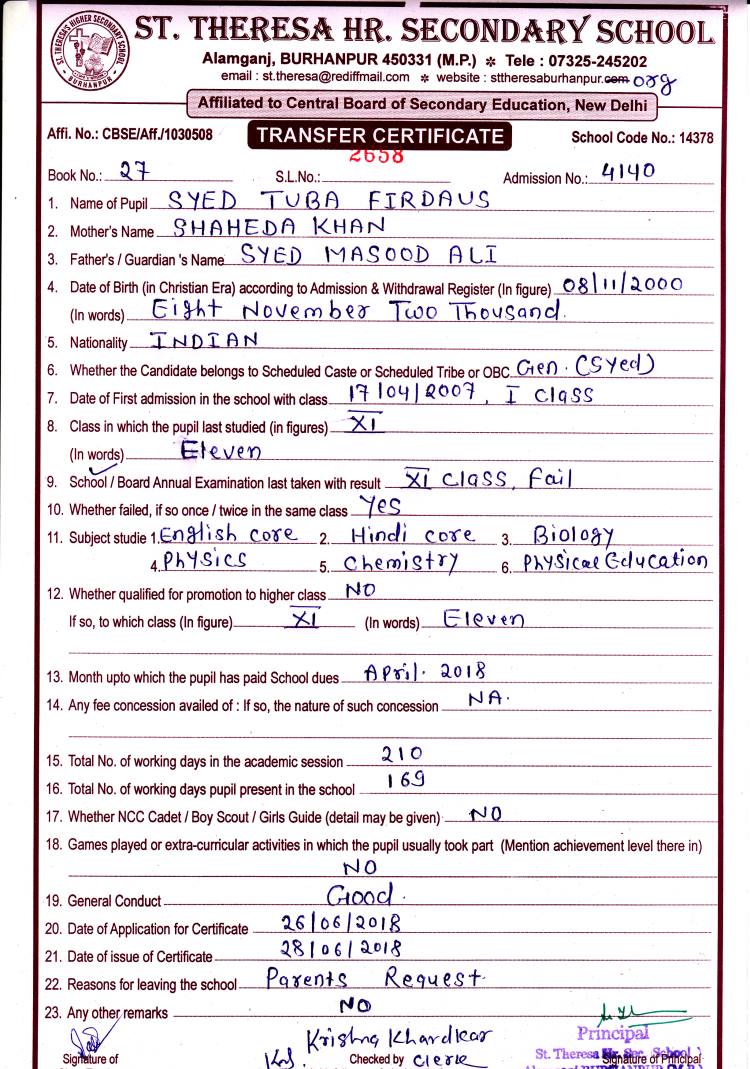 ST. THERESA'S HIGHER SECONDARY SCHOOL
BURHANPUR
ST. THERESA HR. SECONDARY SCHOOL
Alamganj, BURHANPUR 450331 (M.P.) ✻ Tele : 07325-245202
email : st.theresa@rediffmail.com ✻ website : sttheresaburhanpur.com org
Affiliated to Central Board of Secondary Education, New Delhi
Affi. No.: CBSE/Aff./1030508 TRANSFER CERTIFICATE School Code No.: 14378
Book No.: 27 S.L.No.: 2658 Admission No.: 4140
1. Name of Pupil SYED TUBA FIRDAUS
2. Mother's Name SHAHEDA KHAN
3. Father's / Guardian 's Name SYED MASOOD ALI
4. Date of Birth (in Christian Era) according to Admission & Withdrawal Register (In figure) 08/11/2000
(In words) Eight November Two Thousand.
5. Nationality INDIAN
6. Whether the Candidate belongs to Scheduled Caste or Scheduled Tribe or OBC Gen. (Syed)
7. Date of First admission in the school with class 17/04/2007, I Class
8. Class in which the pupil last studied (in figures) XI
(In words) Eleven
9. School / Board Annual Examination last taken with result XI Class, Fail
10. Whether failed, if so once / twice in the same class Yes
11. Subject studie 1. English core 2. Hindi core 3. Biology
4. Physics 5. Chemistry 6. Physical Education
12. Whether qualified for promotion to higher class NO
If so, to which class (In figure) XI (In words) Eleven
13. Month upto which the pupil has paid School dues April. 2018
14. Any fee concession availed of : If so, the nature of such concession NA.
15. Total No. of working days in the academic session 210
16. Total No. of working days pupil present in the school 169
17. Whether NCC Cadet / Boy Scout / Girls Guide (detail may be given) NO
18. Games played or extra-curricular activities in which the pupil usually took part (Mention achievement level there in)
NO
19. General Conduct Good.
20. Date of Application for Certificate 26/06/2018
21. Date of issue of Certificate 28/06/2018
22. Reasons for leaving the school Parents Request.
23. Any other remarks NO
Krishna Khardkar
Principal
Signature of Checked by Clerk Signature of Principal
St. Theresa Hr. Sec. School